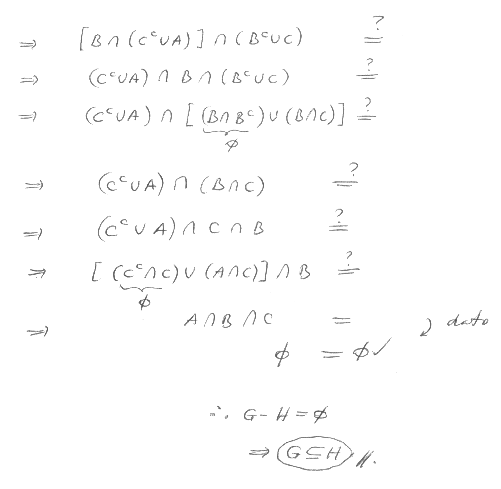 ⇒ [B∩(Cᶜ∪A)]∩(Bᶜ∪C) ≟
⇒ (Cᶜ∪A)∩B∩(Bᶜ∪C) ≟
⇒ (Cᶜ∪A)∩[(B∩Bᶜ)∪(B∩C)] ≟
ϕ
⇒ (Cᶜ∪A)∩(B∩C) ≟
⇒ (Cᶜ∪A)∩C∩B ≟
⇒ [(Cᶜ∩C)∪(A∩C)]∩B ≟
ϕ
⇒ A∩B∩C = dato
ϕ = ϕ✓
∴ G-H=ϕ
⇒ G⊆H //.